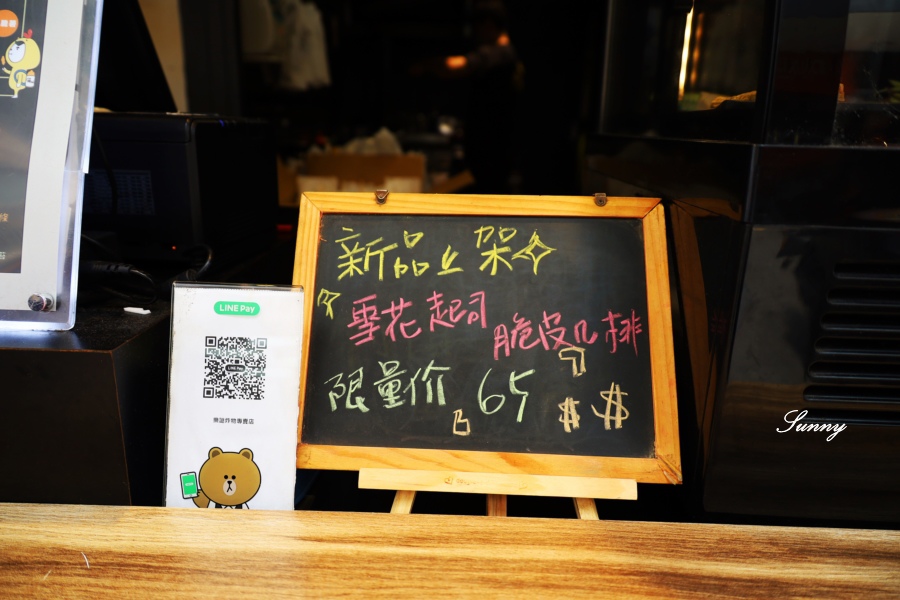 新品上架
雪花起司
脆皮几排
限量价 65
$ $
LINE Pay
LINE Pay
炸物專賣店
Sunny